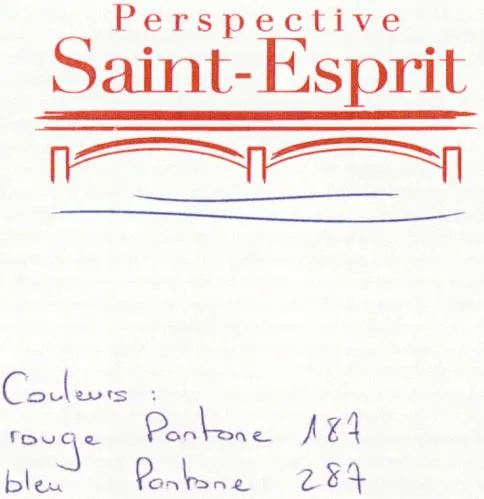 Perspective
Saint-Esprit
Couleurs :
rouge Pantone 187
bleu Pantone 287